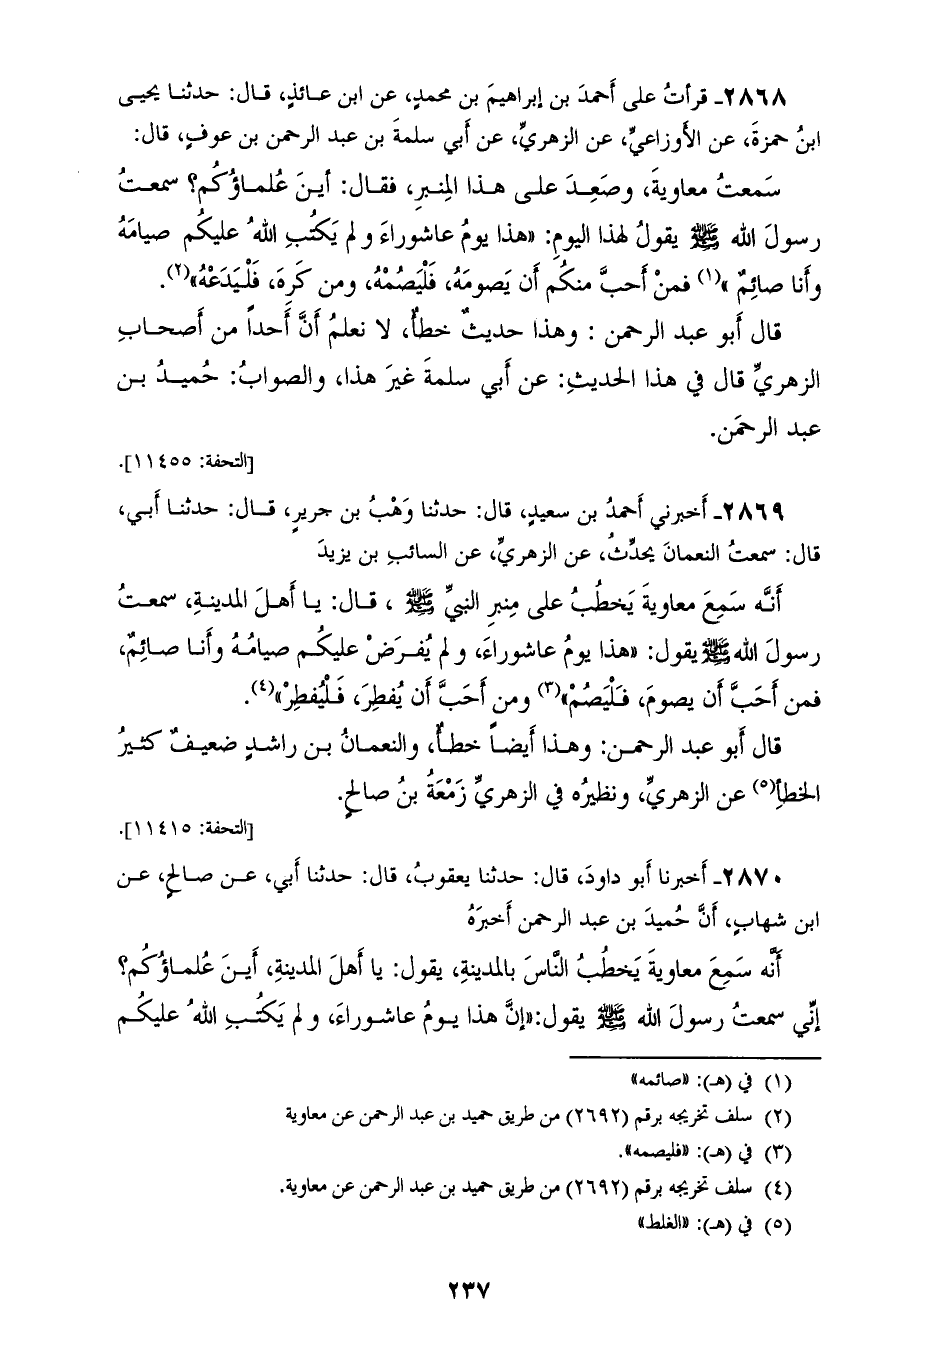 ٢٨٦٨ـ قرأتُ على أَحمدَ بن إبراهيمَ بن محمدٍ، عن ابن عـائذٍ، قـال: حدثنـا يحيـى
ابنُ حمزةَ، عن الأَوزاعيِّ، عن الزهريِّ، عن أَبي سلمةَ بن عبد الرحمن بن عوفٍ، قال:
سَمعتُ معاويةَ، وصَعِدَ علـى هـذا المِنبرِ، فقـال: أينَ عُلمـاؤُكُم؟ سمعتُ
رسولَ الله ﷺ يقولُ لهذا اليومِ: «هذا يومُ عاشوراءَ و لم يَكتُبِ اللهُ عليكُم صيامَهُ
وأَنا صائِمٌ »(١) فمنْ أَحبَّ منكُم أَن يَصومَهُ، فَلْيَصُمْهُ، ومن كَرِهَ، فَلْيَدَعْهُ»(٢).
قال أَبو عبد الرحمن : وهذا حديثٌ خطأٌ، لا نعلمُ أَنَّ أَحداً من أَصحـابِ
الزهريِّ قال في هذا الحديثِ: عن أَبي سلمةَ غيرَ هذا، والصوابُ: حُميـدُ بـن
عبد الرحمَن.
[التحفة: ١١٤٥٥].
٢٨٦٩ـ أَخبرني أَحمدُ بن سعيدٍ، قال: حدثنا وَهْبُ بن جريرٍ، قـال: حدثنـا أَبـي،
قال: سمعتُ النعمانَ يحدِّثُ، عن الزهريِّ، عن السائبِ بن يزيدَ
أَنَّه سَمِعَ معاويةَ يَخطُبُ على مِنبرِ النبيِّ ﷺ ، قـال: يـا أَهـلَ المدينـةِ، سمعـتُ
رسولَ الله ﷺ يقول: «هذا يومُ عاشوراءَ، و لم يُفـرَضْ عليكُـم صيامُـهُ وأَنـا صـائِمٌ،
فمن أَحَبَّ أَن يصومَ، فَلْيَصُمْ»(٣) ومن أَحَبَّ أَن يُفطِرَ، فَلْيُفطِرْ»(٤).
قال أَبو عبد الرحمـن: وهـذا أَيضـاً خطـأٌ، والنعمـانُ بـن راشـدٍ ضعيـفٌ كثـيرُ
الخطأِ(٥) عن الزهريِّ، ونظيرُه في الزهريِّ زَمْعَةُ بنُ صالحٍ.
[التحفة: ١١٤١٥].
٢٨٧٠ـ أَخبرنا أَبو داودَ، قال: حدثنا يعقوبُ، قال: حدثنا أَبي، عـن صـالحٍ، عـن
ابن شهابٍ، أَنَّ حُميدَ بن عبد الرحمن أَخبرَهُ
أَنَّه سَمِعَ معاويةَ يَخطُبُ النَّاسَ بالمدينةِ، يقول: يا أَهلَ المدينةِ، أَيـنَ عُلمـاؤُكُم؟
إنِّي سمعتُ رسولَ الله ﷺ يقول:«إنَّ هذا يـومُ عاشـوراءَ، و لم يَكتُـبِ اللهُ عليكُـم
(١) في (هـ): «صائمه»
(٢) سلف تخريجه برقم (٢٦٩٢) من طريق حميد بن عبد الرحمن عن معاوية
(٣) في (هـ): «فليصمه».
(٤) سلف تخريجه برقم (٢٦٩٢) من طريق حميد بن عبد الرحمن عن معاوية.
(٥) في (هـ): «الغلط»
٢٣٧